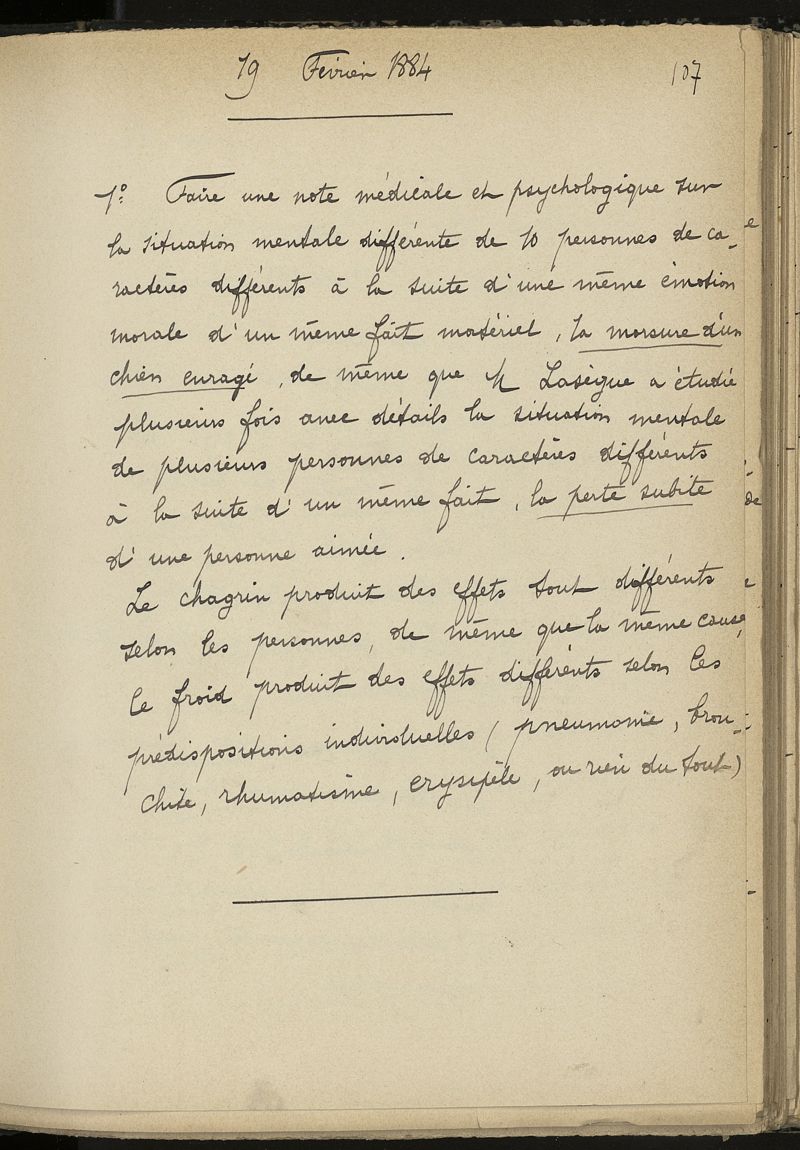 19 Février 1884
107
1º. Faire une note médicale et psychologique sur
la situation mentale différente de 10 personnes de ca-
ractères différents à la suite d'une même émotion
morale d'un même fait matériel, la morsure d'un
chien enragé, de même que M Lasègue a étudié
plusieurs fois avec détails la situation mentale
de plusieurs personnes de caractères différents
à la suite d'un même fait, la perte subite
d'une personne aimée.
Le chagrin produit des effets tout différents
selon les personnes, de même que la même cause,
le froid produit des effets différents selon les
prédispositions individuelles (pneumonie, bron-
chite, rhumatisme, erysipèle, ou rien du tout)